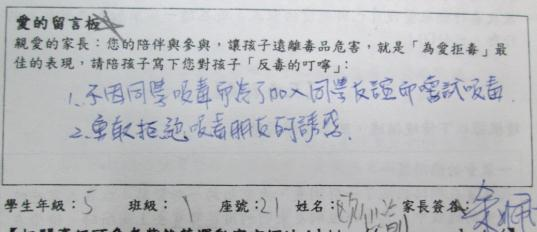 愛的留言板
親愛的家長：您的陪伴與參與，讓孩子遠離毒品危害，就是「為愛拒毒」最
佳的表現，請陪孩子寫下您對孩子「反毒的叮嚀」：
1、不因同學吸毒而為了加入同學友誼而嚐試吸毒.
2、勇敢拒絕吸毒朋友的誘惑.
學生年級：5 班級：1 座號：21 姓名： 家長簽名：